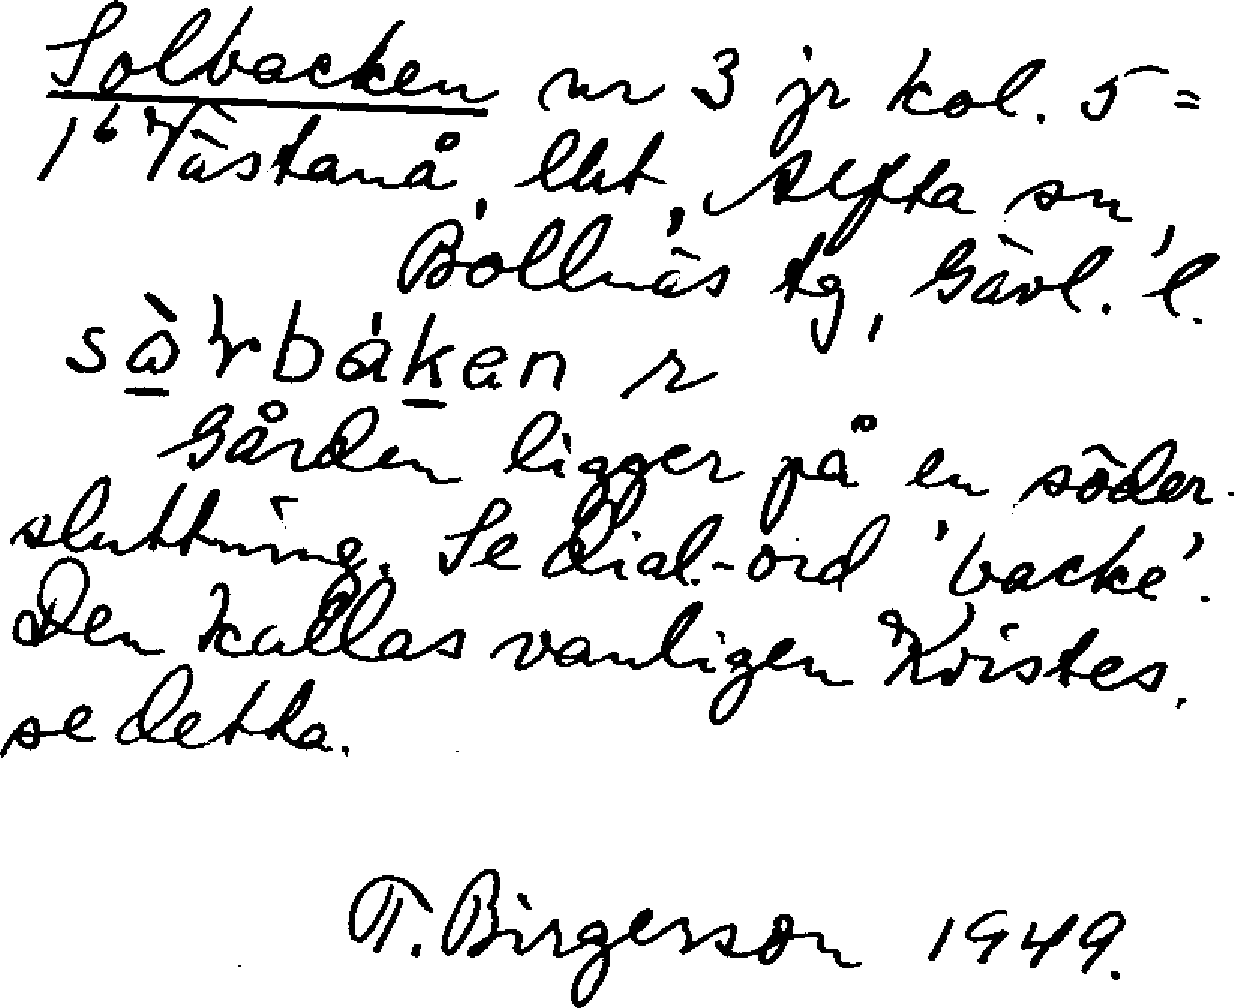 Solbacken nr 3 jr kol. 5 =
1⁶ Västanå, lht, Alfta sn,
Bollnäs tg, Gävl. l.
Gården ligger på en söder-
sluttning. Se dial.-ord 'backe'.
Den kallas vanligen Kvistes.
se detta.
T. Birgerson 1949.